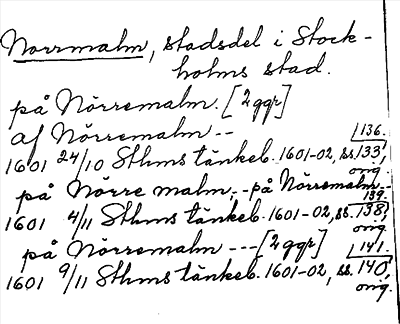 Norrmalm, stadsdel i Stock-
holms stad.
på Nörremalm. [2 ggr]
af Nörremalm --
136.
1601 24/10 Sthms tänkeb. 1601-02, ss. 133,
orig.
på Nörre malm -- på Nörremalm --
139.
1601 4/11 Sthms tänkeb. 1601-02, ss. 138,
orig.
på Nörremalm --- [2 ggr]
141.
1601 9/11 Sthms tänkeb. 1601-02, ss. 140,
orig.